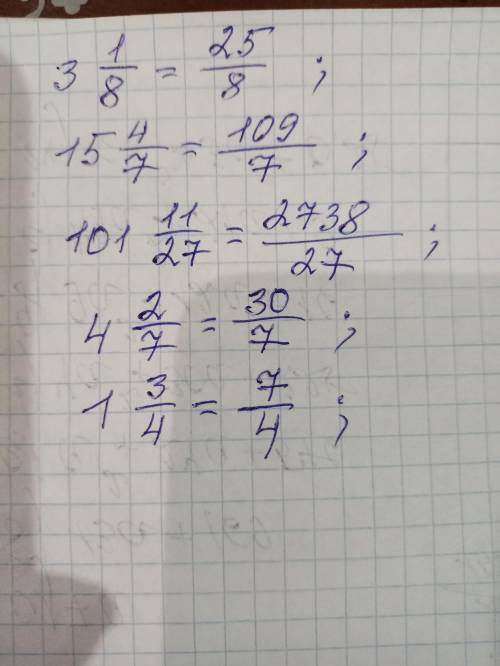 3 1/8 = 25/8 ;
15 4/7 = 109/7 ;
101 11/27 = 2738/27 ;
4 2/7 = 30/7 ;
1 3/4 = 7/4 ;